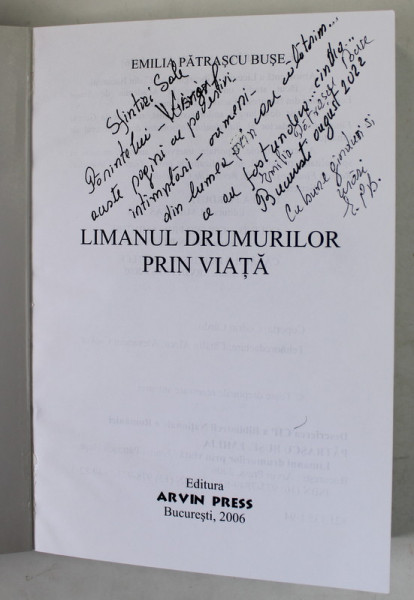 EMILIA PĂTRAȘCU BUȘE
Sfinției Sale
Părintelui -
aceste pagini de povestiri
întîmplări - oameni -
din lumea prin care călătorim...
ce au fost undeva.. cîndva..
Emilia Pătrașcu Bușe
București august 2022
Cu bune gînduri și
urări
E.P.B.
LIMANUL DRUMURILOR
PRIN VIAȚĂ
Editura
ARVIN PRESS
București, 2006